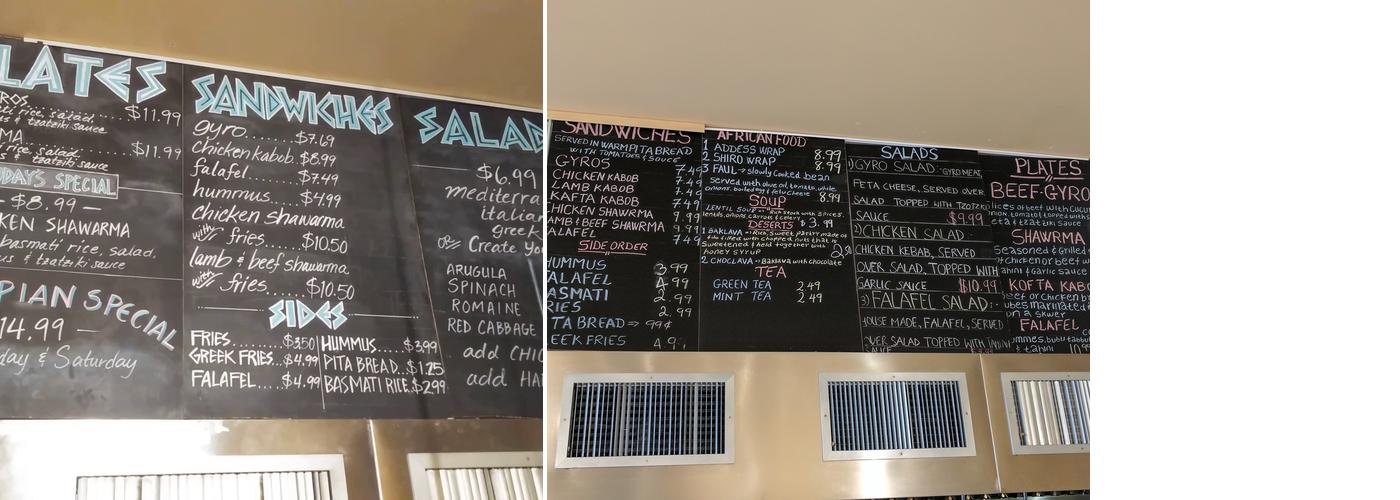 LATES
ROS
$11.99
rice, salad,
& tzatziki sauce
MA
$11.99
rice, salad
& tzatziki sauce
DAY'S SPECIAL
- $8.99 -
KEN SHAWARMA
basmati rice, salad,
& tzatziki sauce
PIAN SPECIAL
14.99 -
day & Saturday
SANDWICHES
gyro......$7.69
chicken kabob $8.99
falafel......$7.49
hummus......$4.99
chicken shawarma
with fries......$10.50
lamb & beef shawarma
with fries......$10.50
SIDES
FRIES......$3.50
GREEK FRIES...$4.99
FALAFEL......$4.99
HUMMUS......$3.99
PITA BREAD...$1.25
BASMATI RICE.$2.99
SALAD
$6.99
mediterra
italian
greek
Create you
ARUGULA
SPINACH
ROMAINE
RED CABBAGE
add CHIC
add HA
SANDWICHES
SERVED IN WARM PITA BREAD
WITH TOMATOES & SAUCE
GYROS 7.49
CHICKEN KABOB 7.49
LAMB KABOB 7.49
KAFTA KABOB 7.49
CHICKEN SHAWRMA 9.99
AMB & BEEF SHAWRMA 9.99
ALAFEL 7.49
SIDE ORDER
HUMMUS 3.99
ALAFEL 4.99
ASMATI 2.99
RIES 2.99
TA BREAD => 99¢
EEK FRIES 4.9
AFRICAN FOOD
1 ADDESS WRAP 8.99
2 SHIRO WRAP 8.99
3 FAUL -> slowly cooked bean
served with olive oil, tomato, while
onions, boiled egg & feta cheese 8.99
SOUP
LENTIL SOUP => Rich stock with spices,
lentils, onions, carrots & celery 3.99
DESERTS
1 BAKLAVA -> Rich, sweet pastry made of
filo filled with chopped nuts that is
sweetened & held together with
honey syrup 2.50
2 CHOCLAVA -> Baklava with chocolate
TEA
GREEN TEA 2.49
MINT TEA 2.49
SALADS
1) GYRO SALAD: GYRO MEAT,
FETA CHEESE, SERVED OVER
SALAD TOPPED WITH TZATZIKI
SAUCE $9.99
2) CHICKEN SALAD:
CHICKEN KEBAB, SERVED
OVER SALAD, TOPPED WITH
GARLIC SAUCE $10.99
3) FALAFEL SALAD:
HOUSE MADE, FALAFEL, SERVED
OVER SALAD TOPPED WITH
SAUCE
PLATES
BEEF GYRO
lices of beef with cucum
onion, tomato, topped with s
feta & tzatziki sauce
SHAWRMA
Seasoned & Grilled
of chicken or beef w
ahini & garlic sauce
KOFTA KABO
beef or chicken b
ubes marinated
on a skwer
FALAFEL
& tahini 10.9